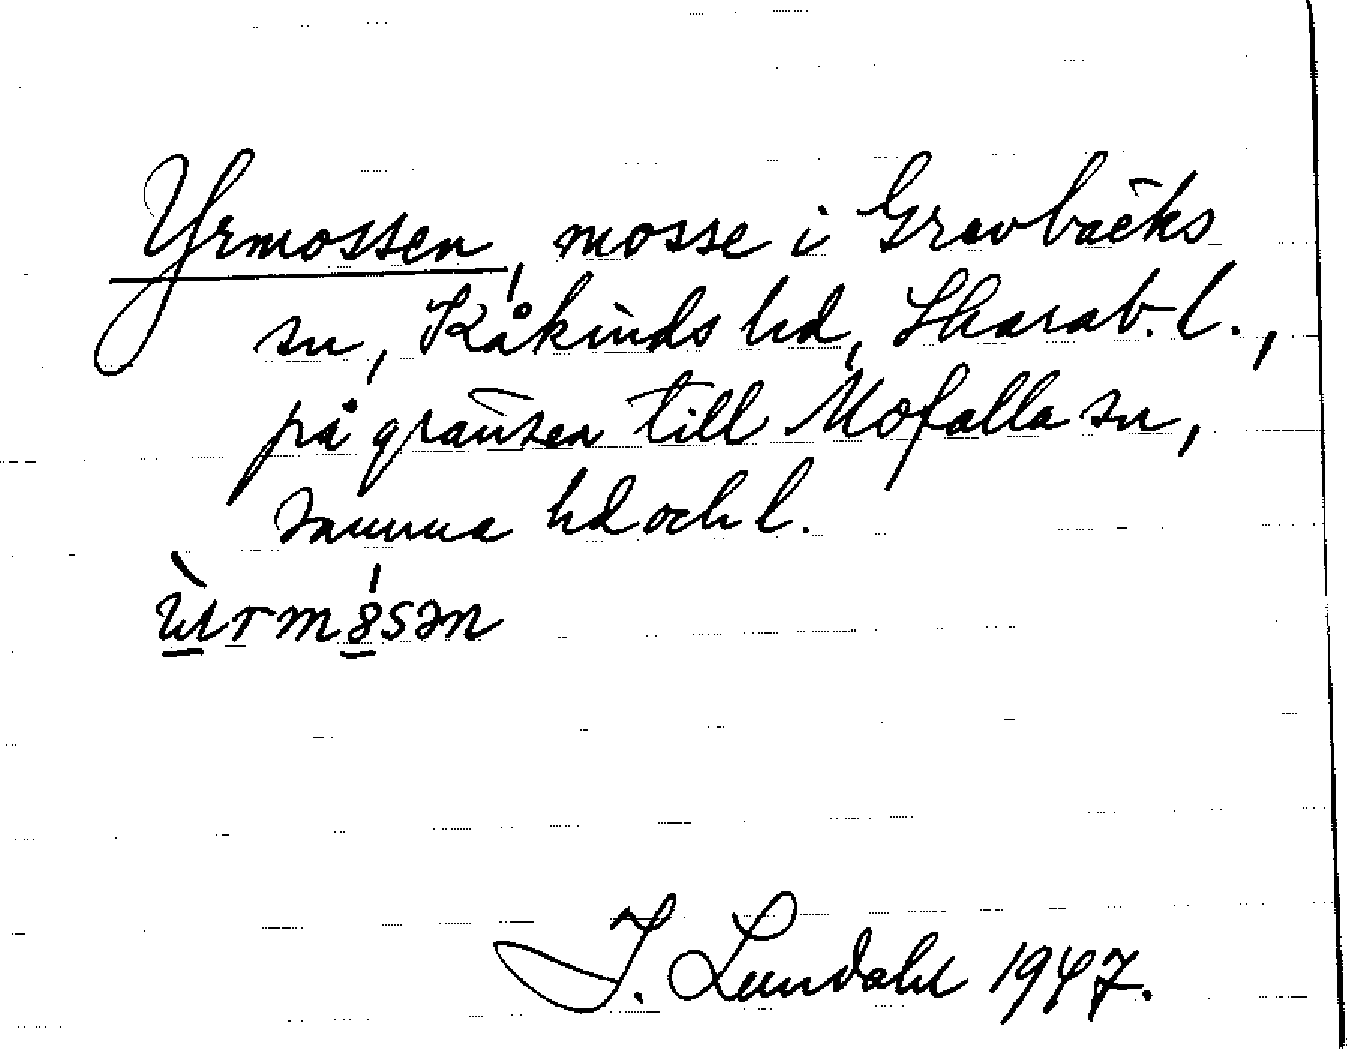 Yrmossen, mosse i Grevbäcks
sn, Kåkinds hd, Skarab. l.,
på gränsen till Mofalla sn,
samma hd och l.
J. Lundahl 1947.